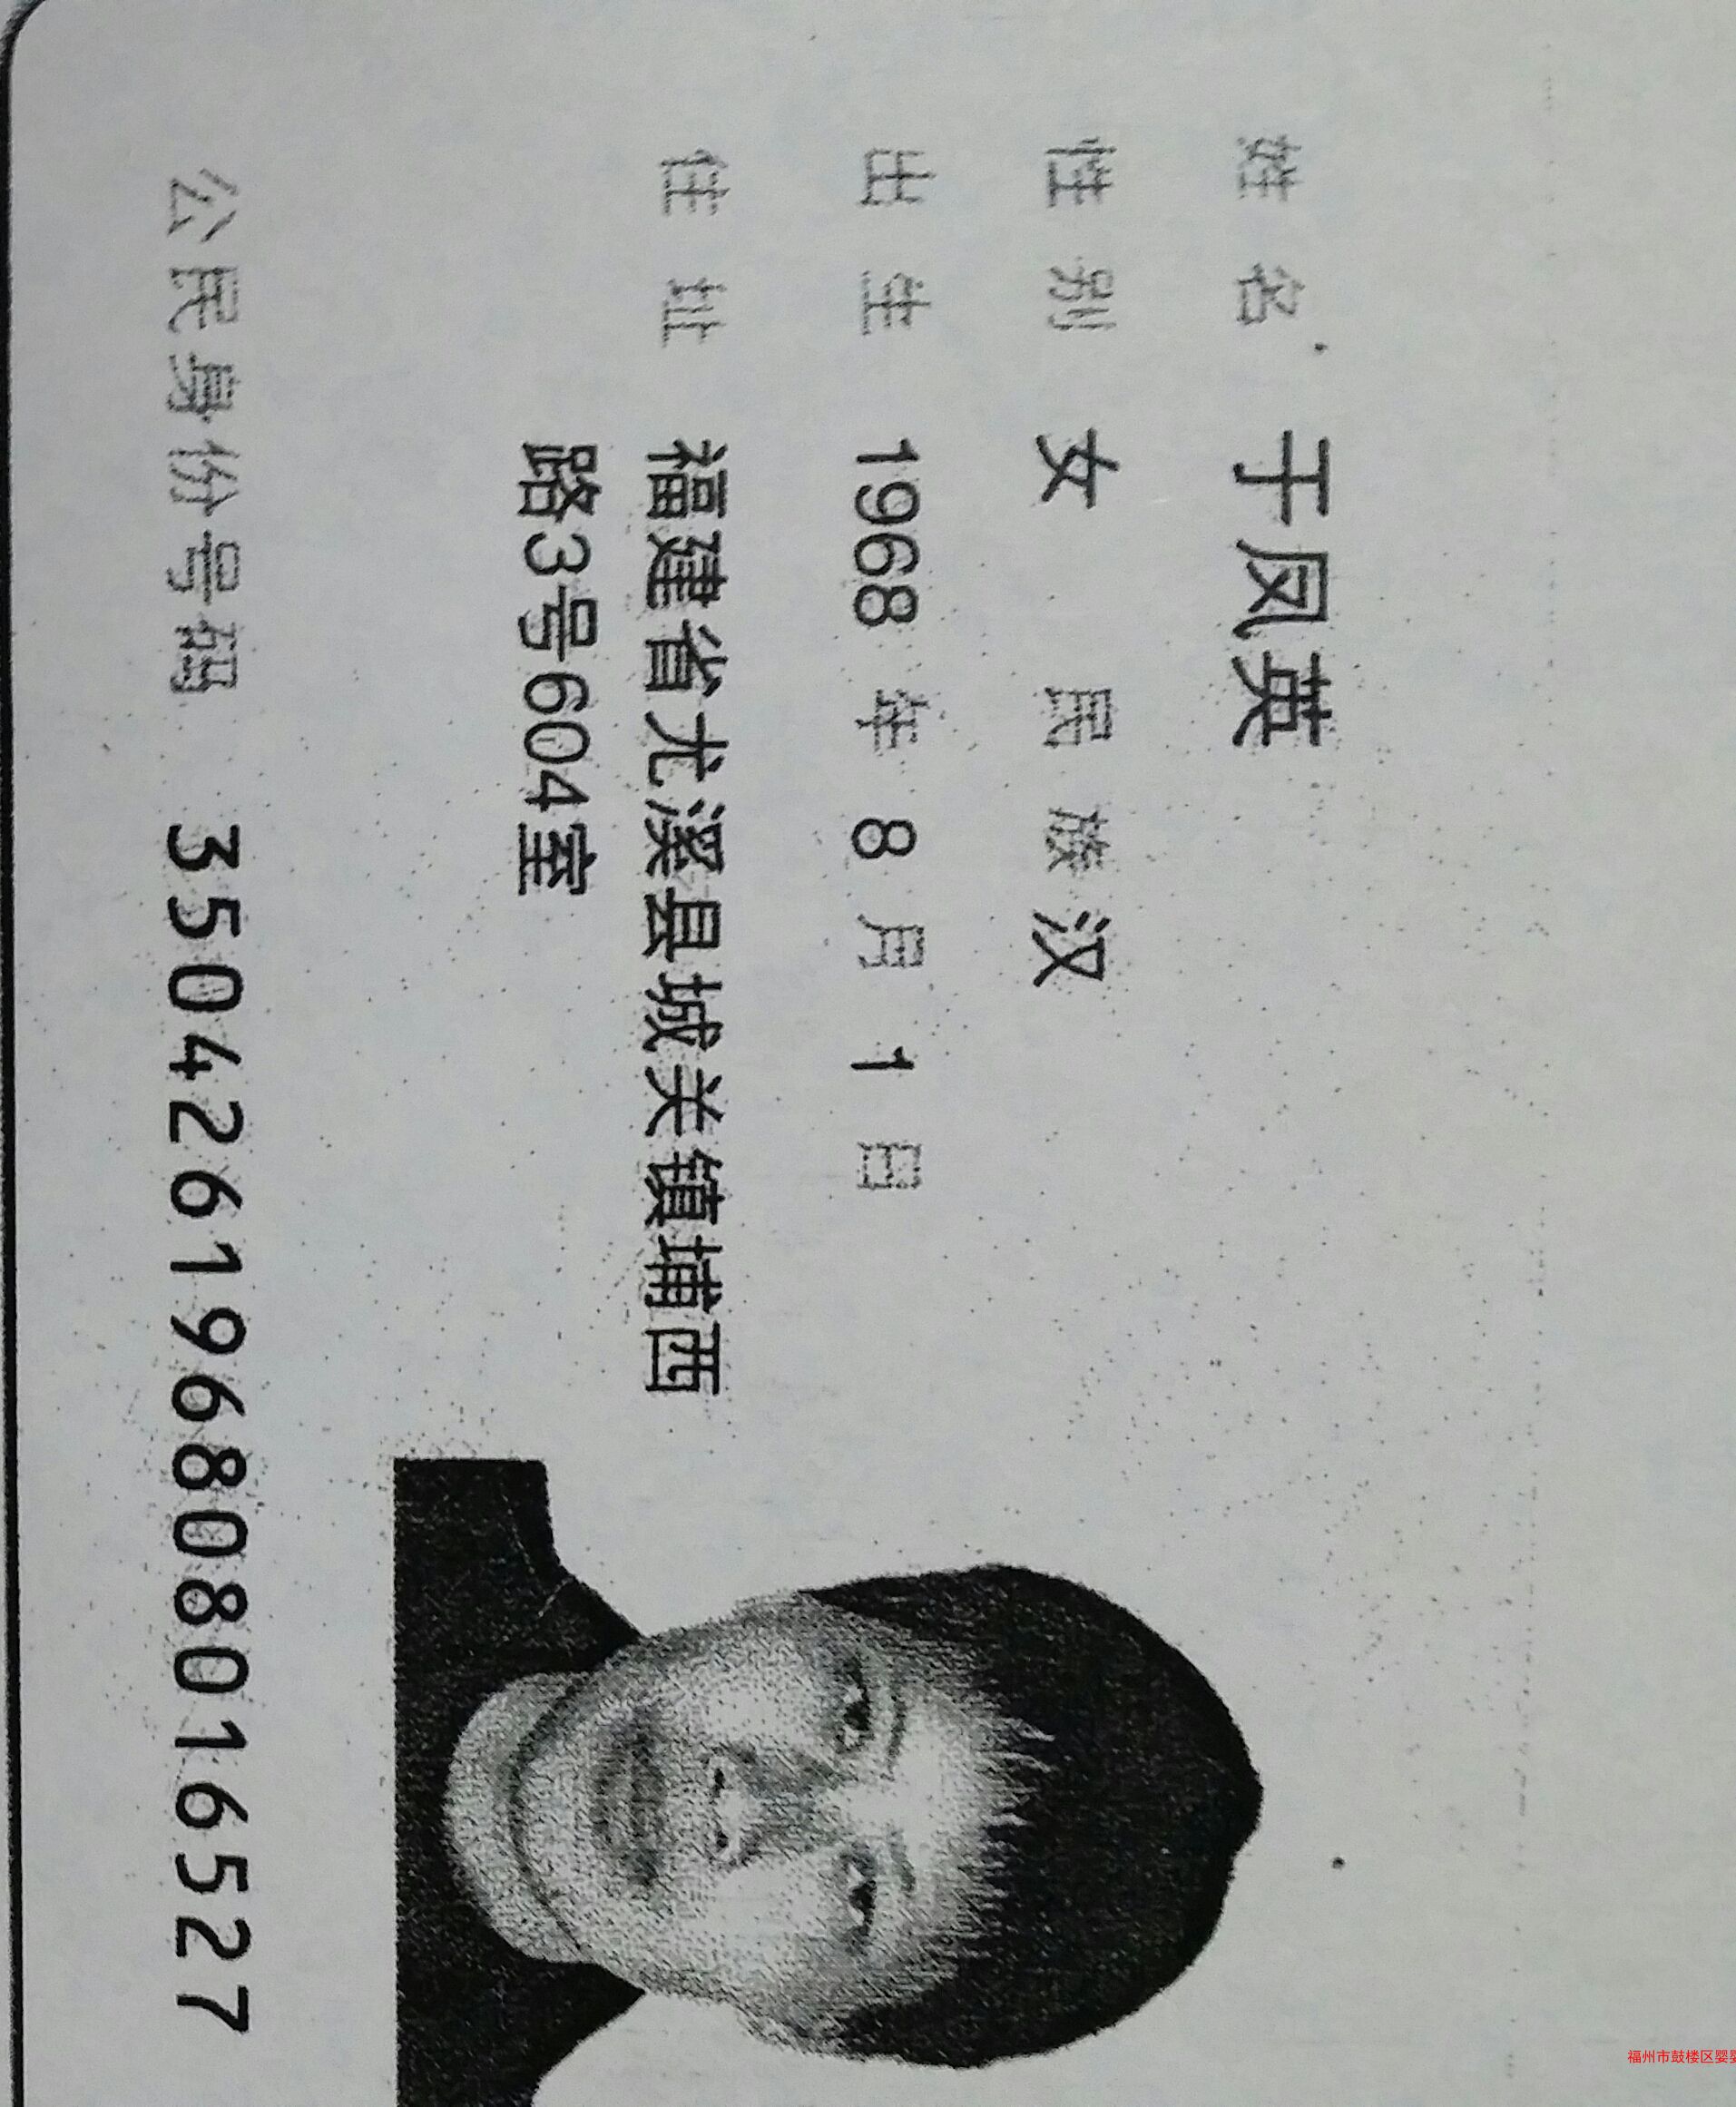 姓名 于凤英
性别 女 民族 汉
出生 1968 年 8 月 1 日
住址 福建省尤溪县城关镇埔西
路3号604室
公民身份号码 350426196808016527
福州市鼓楼区婴